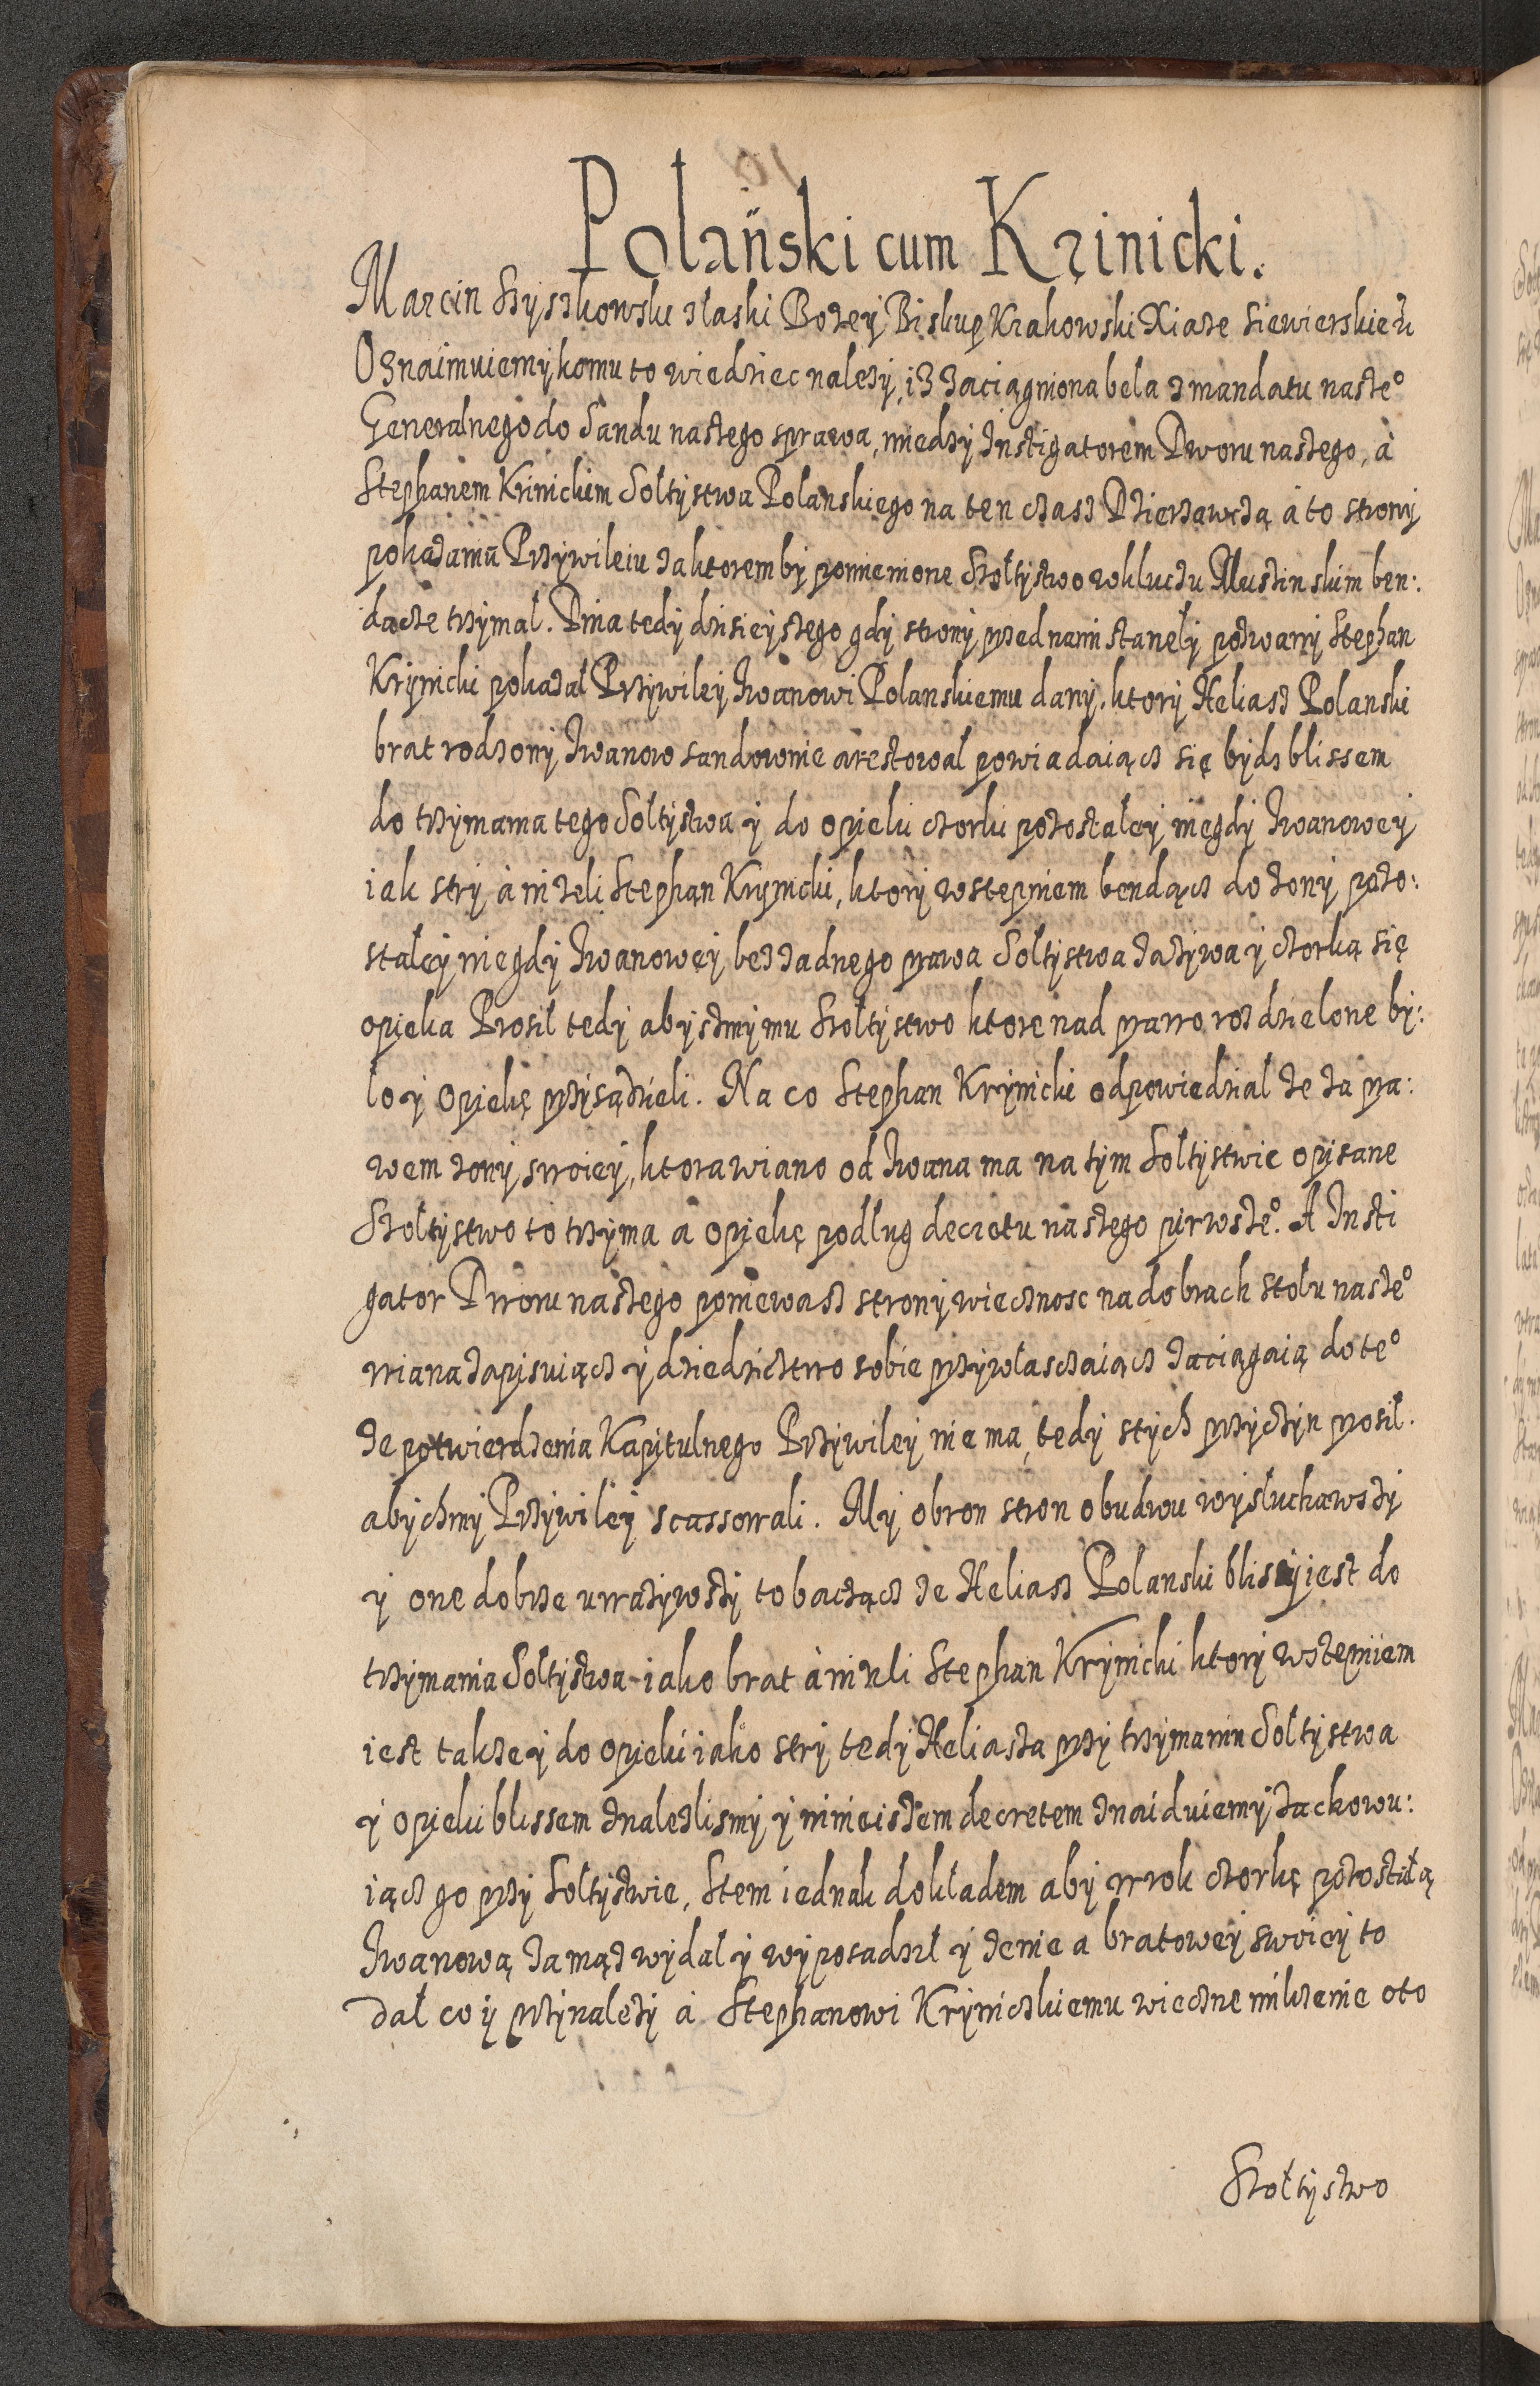 Polański cum Krinicki.
Marcin Szyszkowski z łaski Bozey Biskup Krakowski Xiąze Siewierskie
Oznaimuiemy komu to wiedziec nalezy, iz zaciągniona bela z mandatu nasze°
Generalnego do Sandu naszego sprawa, miedzy Instigatorem Dworu naszego, à
Stephanem Krinickim Soltystwa Polanskiego na ten czasz Dzierzawczą à to strony
pokazania Przywileiu za ktorem by pomienione Szołtystwo w kluczu Muszinskim ben:
dącze trzymal. Dnia tedy dzisieyszego gdy strony przed nami stanely pozwany Stephan
Krynicki pokazał Przywiley Iwanowi Polanskiemu dany, ktory Heliasz Polanski
brat rodzony Iwanow sandownie arestowal powiadaiącz się bydz blissem
do trzymania tego Soltystwa y do opieki czorki pozostałey niegdy Iwanowey
iak stry à nizeli Stephan Krynicki, ktory wstepniem bendącz do zony pozo:
stałey niegdy Iwanowey bez zadnego prawa Soltystwa zazywa y czorką się
opieka Prosil tedy abyszmy mu Szołtystwo ktore nad prawo rozdzielone by:
lo y Opiekę przysądzieli. Na co Stephan Krynicki odpowiedzial ze za pra:
wem zony swoiey, ktora wiano od Iwana ma na tym Soltystwie opisane
Szołtystwo to trzyma a opiekę podlug decretu naszego pirwsze°. A Insti
gator Dworu naszego poniewasz strony wiecznosc na dobrach stołu nasze°
wiana zapisuiącz y dziedzictwo sobie przywlasczaiącz zaciągaią do te°
ze potwierdzenia Kapitulnego Przywiley nie ma, tedy s tych przyczyn prosil.
abychmy Przywiley scassowali. My obron stron obudwu wysluchawszy
y one dobrze uwazywszy to bacząc ze Heliasz Polanski blissy iest do
trzymania Soltystwa iako brat à nizeli Stephan Krynicki ktory wstepniem
iest takze y do opieki iako stry tedy Heliasza przy trzymaniu Soltystwa
y opieki blissem znalezlismy y ninieiszem decretem znaiduiemy zachowu:
iącz go przy Soltystwie, s tem iednak dokładem aby w rok czorkę pozostałą
Iwanową za mąz wydal y wyposadził y zenie a bratowey swoiey to
dał co iy przynalezy à Stephanowi Kryniczkiemu wieczne milczenie o to
Szołtystwo